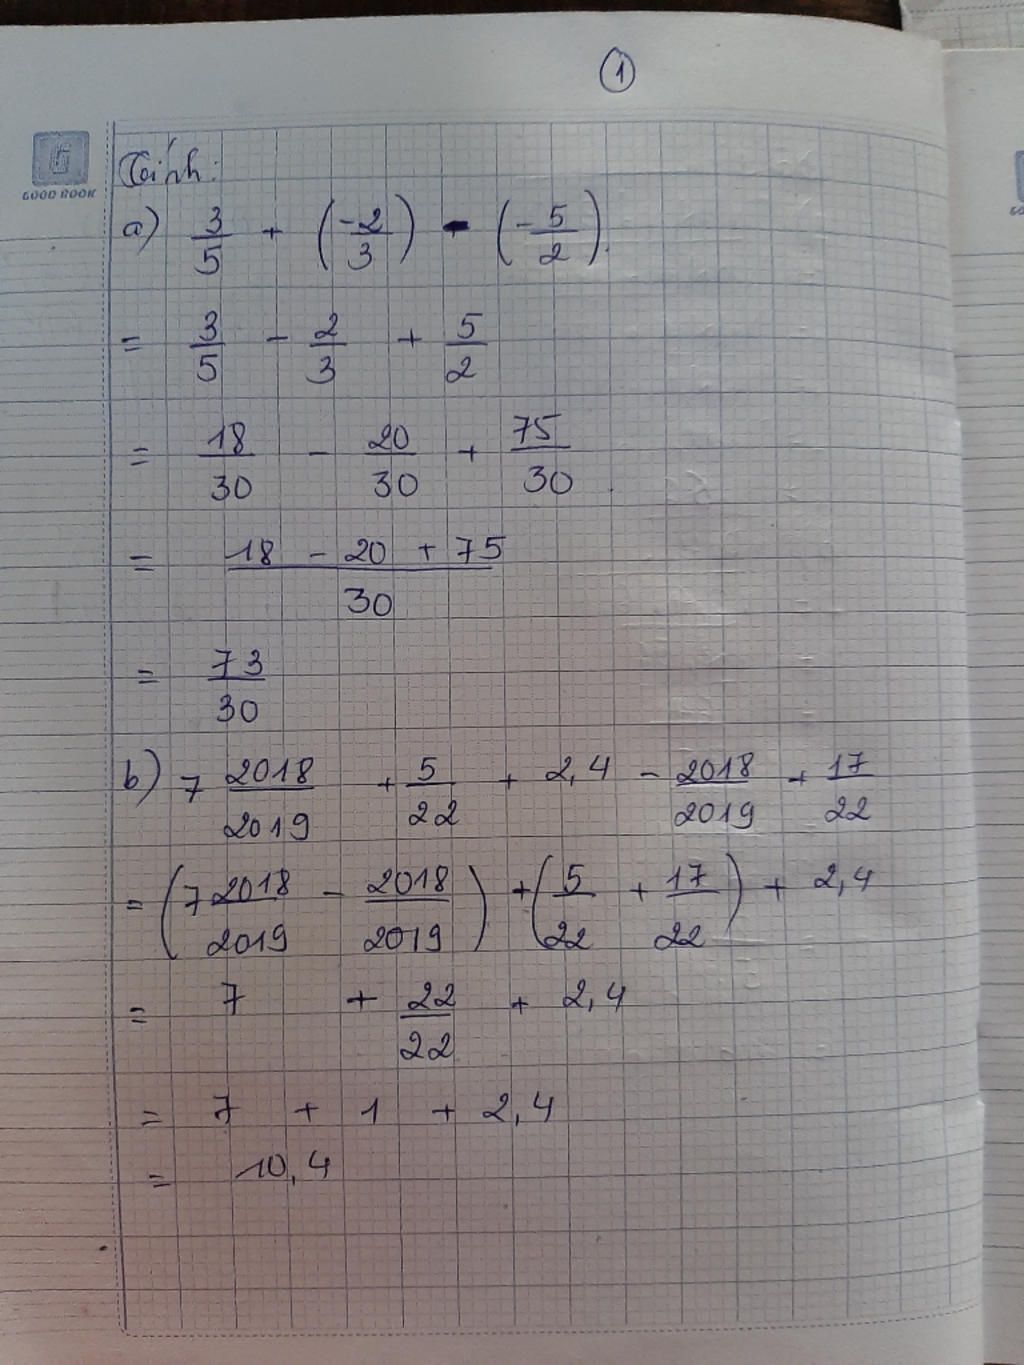 1
GOOD BOOK
Tính:
a) 3/5 + (-2/3) - (-5/2).
= 3/5 - 2/3 + 5/2
= 18/30 - 20/30 + 75/30
= (18 - 20 + 75)/30
= 73/30
b) 7 2018/2019 + 5/22 + 2,4 - 2018/2019 + 17/22
= (7 2018/2019 - 2018/2019) + (5/22 + 17/22) + 2,4
= 7 + 22/22 + 2,4
= 7 + 1 + 2,4
= 10,4